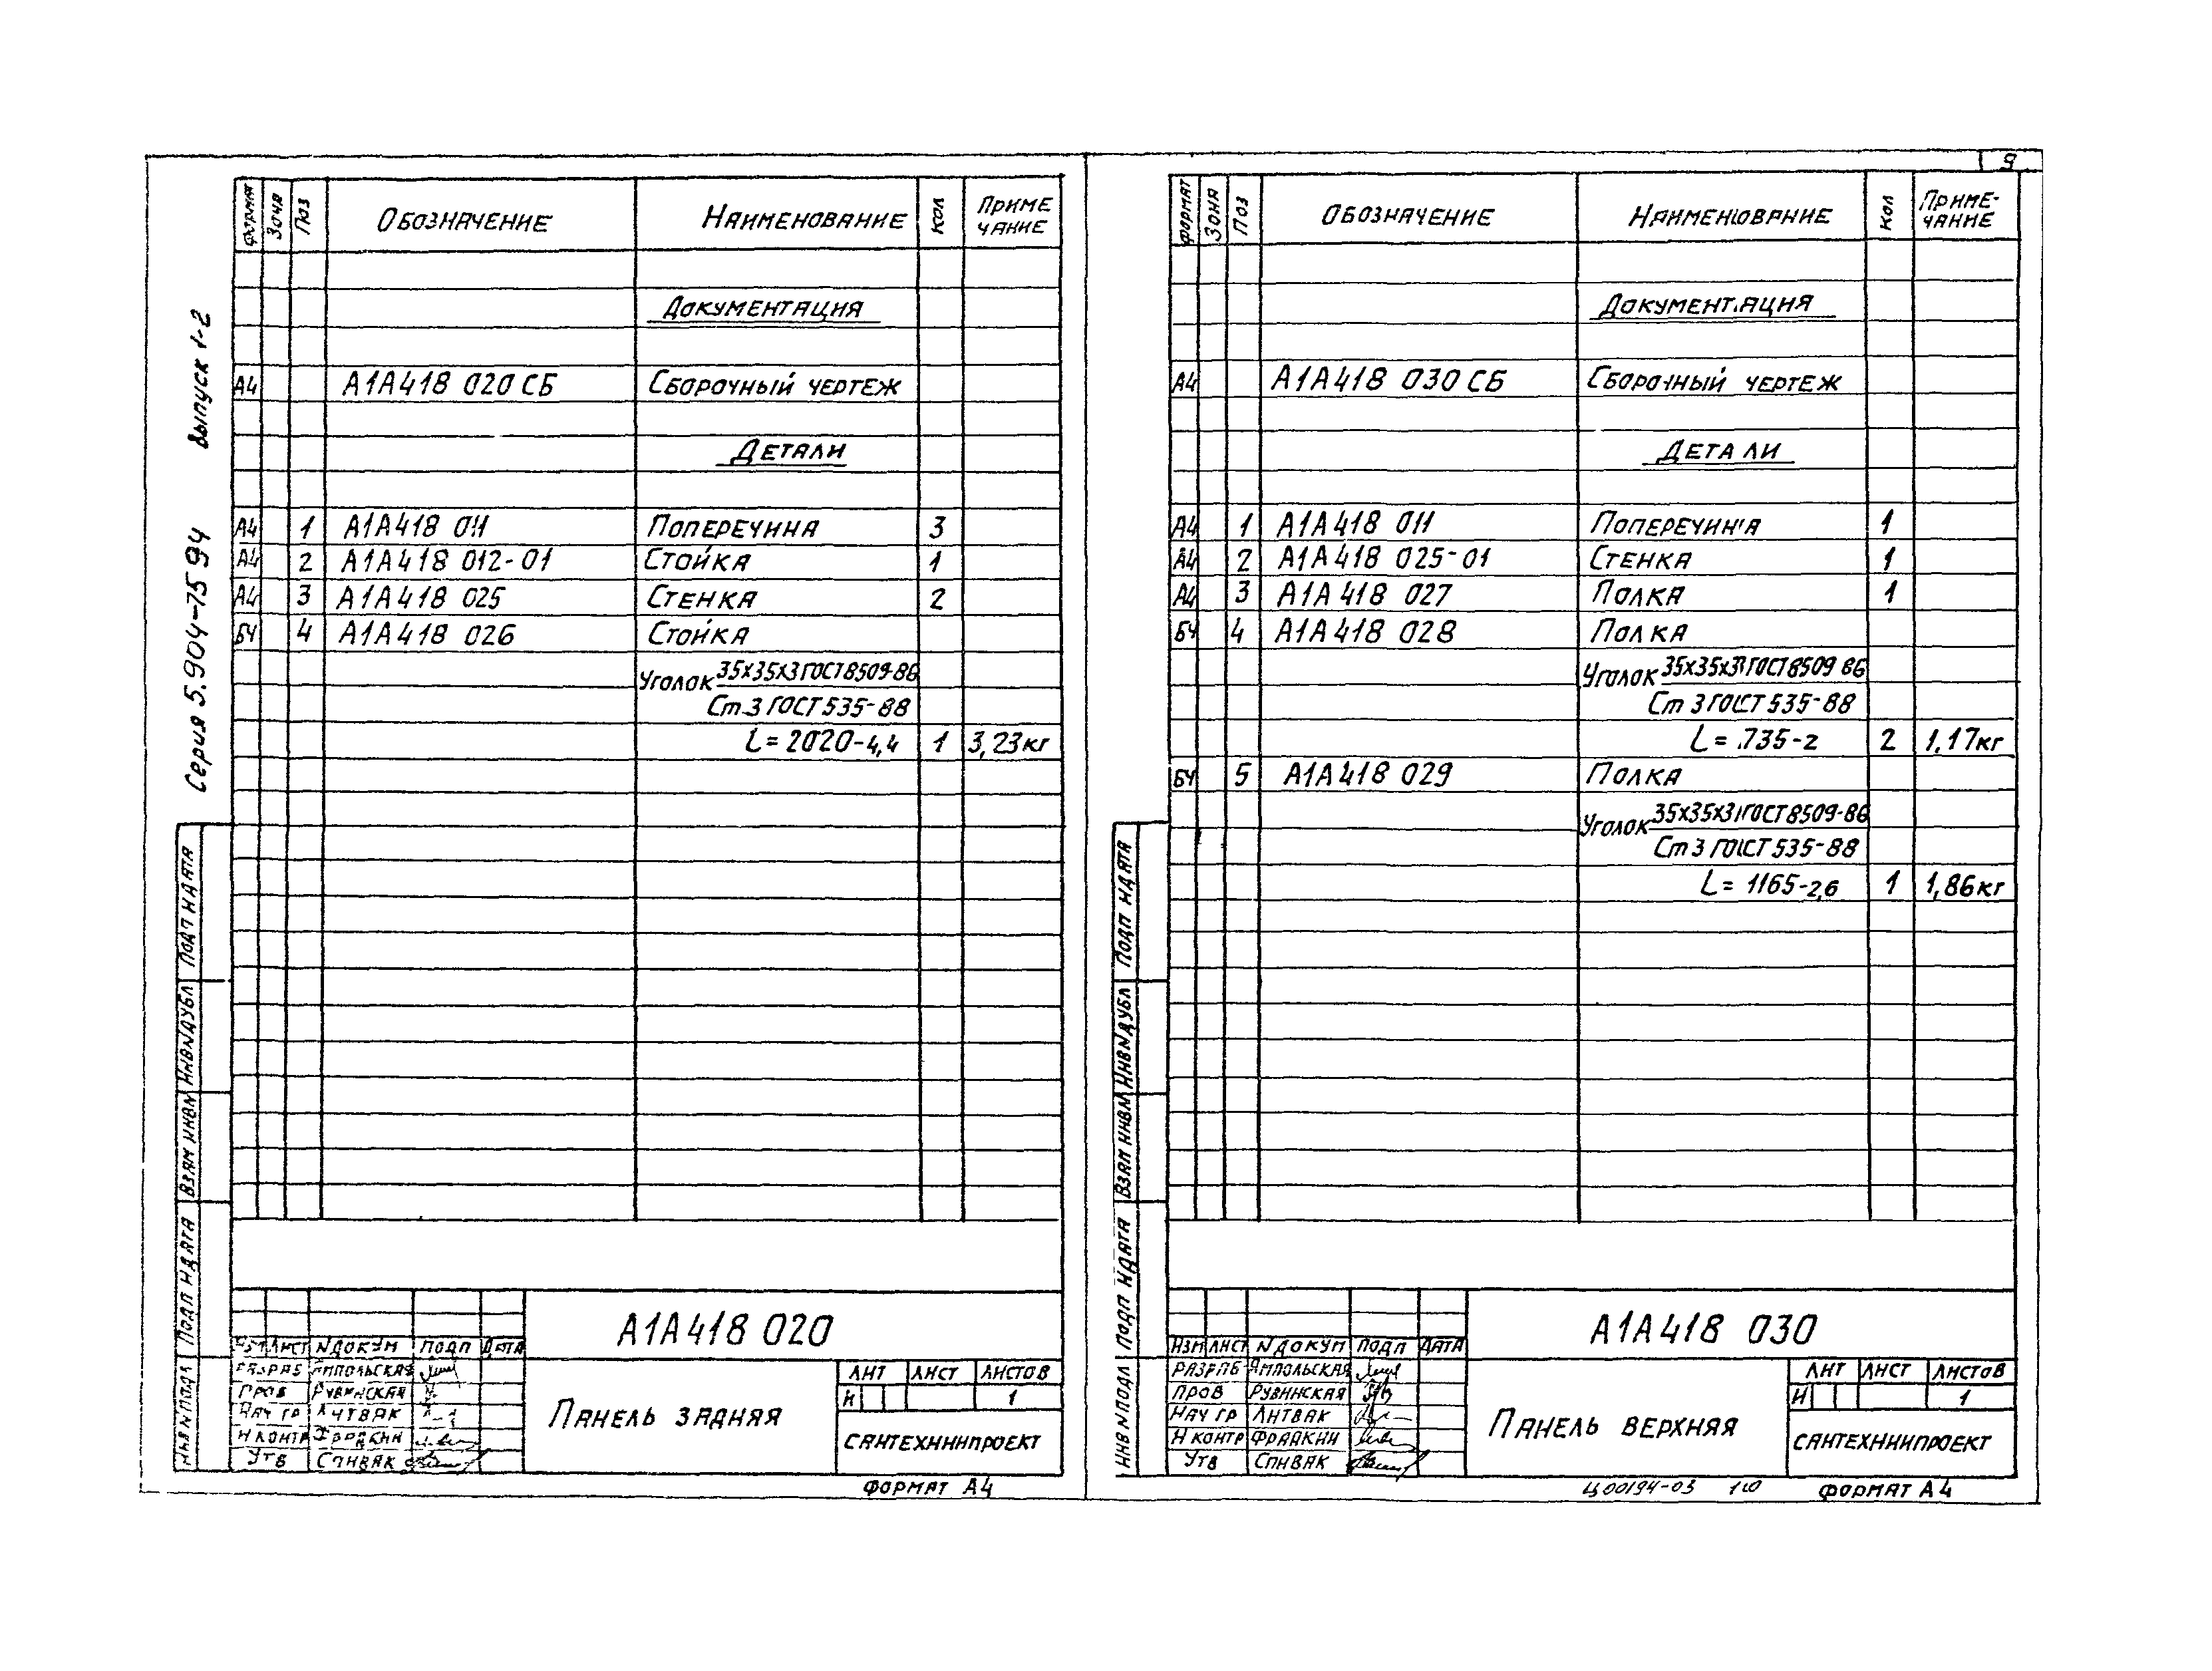 9
Серия 5.904-75 94 выпуск 1-2
Формат Зона Поз Обозначение Наименование Кол Примечание
Документация
А4 А1А418 020 СБ Сборочный чертеж
Детали
А4 1 А1А418 011 Поперечина 3
А4 2 А1А418 012-01 Стойка 1
А4 3 А1А418 025 Стенка 2
БЧ 4 А1А418 026 Стойка
Уголок 35х35х3 ГОСТ 8509-86
Ст.3 ГОСТ 535-88
L= 2020-4,4 1 3,23кг
Подп и дата
Инв N дубл
Взам инв N
Подп и дата
Инв N подл
А1А418 020
Изм Лист N докум Подп Дата
Разраб Ямпольская
Пров Рувинская
Нач гр Литвак
Н контр Фрадкин
Утв Спивак
Панель задняя
Лит Лист Листов
И 1
Сантехниипроект
Формат А4
Формат Зона Поз Обозначение Наименование Кол Примечание
Документация
А4 А1А418 030 СБ Сборочный чертеж
Детали
А4 1 А1А418 011 Поперечина 1
А4 2 А1А418 025-01 Стенка 1
А4 3 А1А418 027 Полка 1
БЧ 4 А1А418 028 Полка
Уголок 35х35х3 ГОСТ 8509 86
Ст 3 ГОСТ 535-88
L= 735-2 2 1,17кг
БЧ 5 А1А418 029 Полка
Уголок 35х35х3 ГОСТ 8509-86
Ст 3 ГОСТ 535-88
L= 1165-2,6 1 1,86кг
Подп и дата
Инв N дубл
Взам инв N
Подп и дата
Инв N подл
А1А418 030
Изм Лист N докум Подп Дата
Разраб Ямпольская
Пров Рувинская
Нач гр Литвак
Н контр Фрадкин
Утв Спивак
Панель верхняя
Лит Лист Листов
И 1
Сантехниипроект
Ц00194-03 10 Формат А4